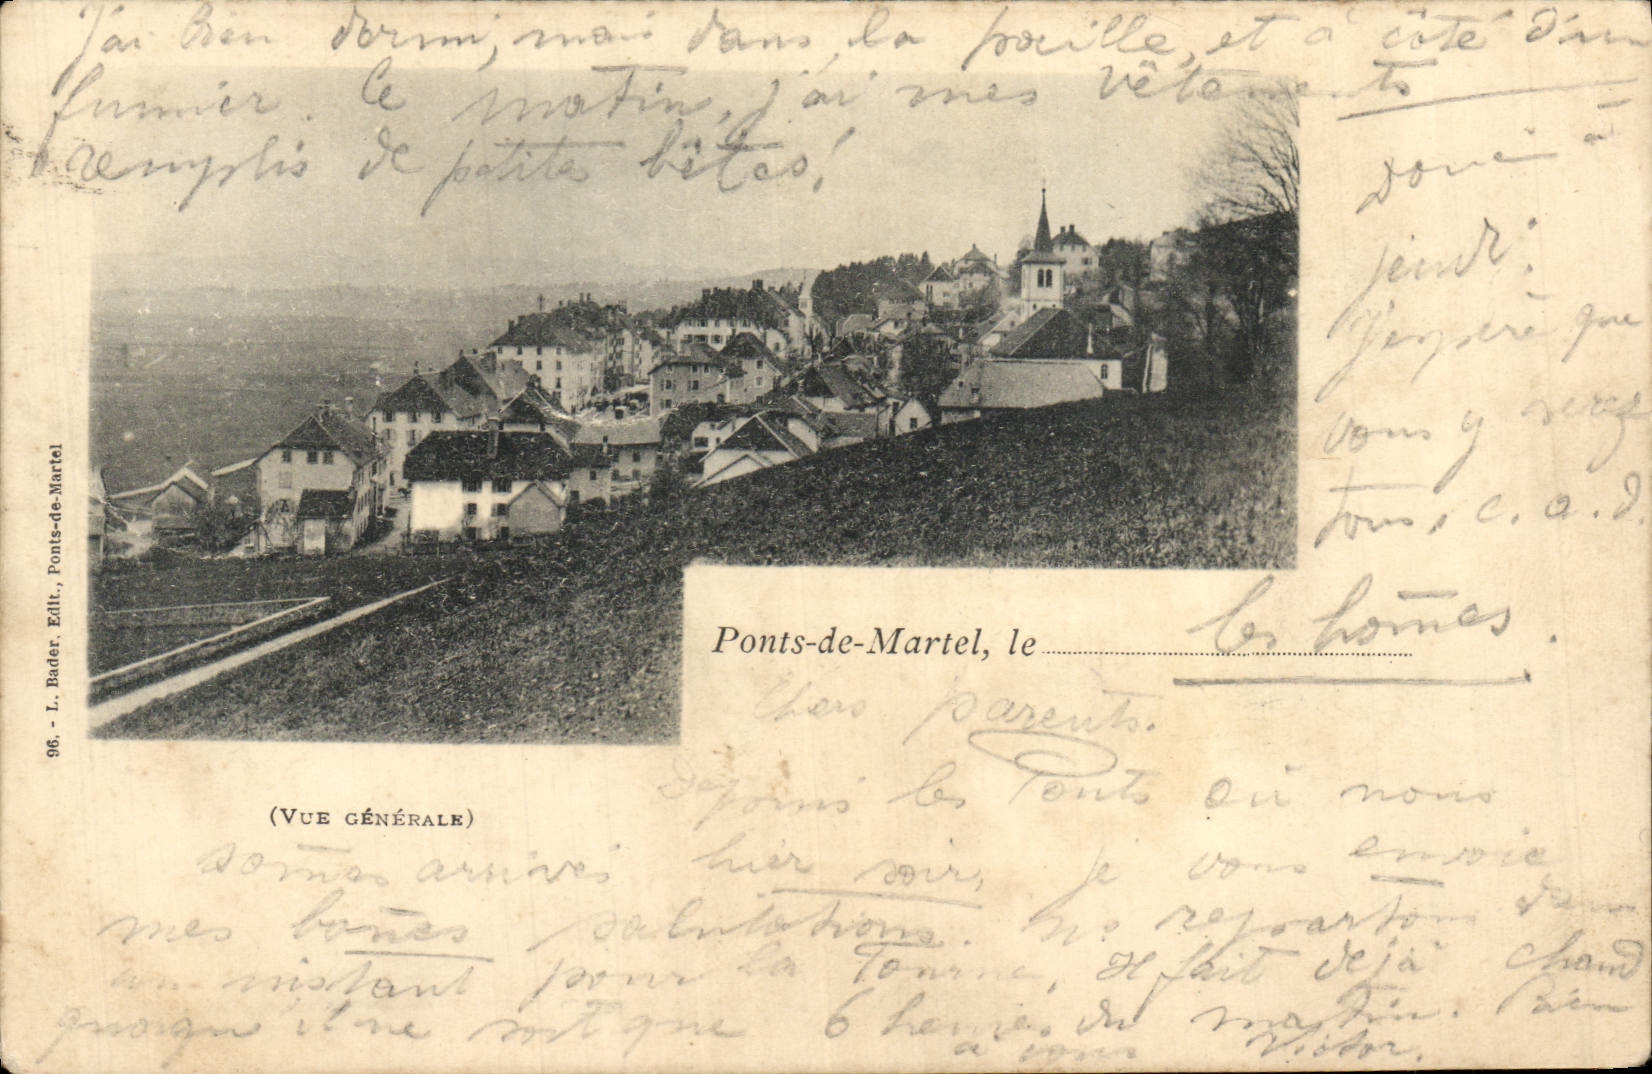 J'ai bien dormi, mais dans la paille, et à côté d'un
fumier. Ce matin, j'ai mes vêtements
remplis de petites bêtes!
Donc à
jeudi.
J'espère que
vous y serez
tous, c. a. d.
les hom̄es.
Ponts-de-Martel, le
96. - L. Bader, Edit., Ponts-de-Martel
(VUE GÉNÉRALE)
Chers parents.
Depuis les Ponts où nous
som̄es arrivés hier soir, je vous envoie
mes bon̄es salutations. Ns repartons dans
un instant pour la Tourne, Il fait déjà chaud
quoiqu'il ne soit que 6 heures du matin. Bien
à vous Victor.